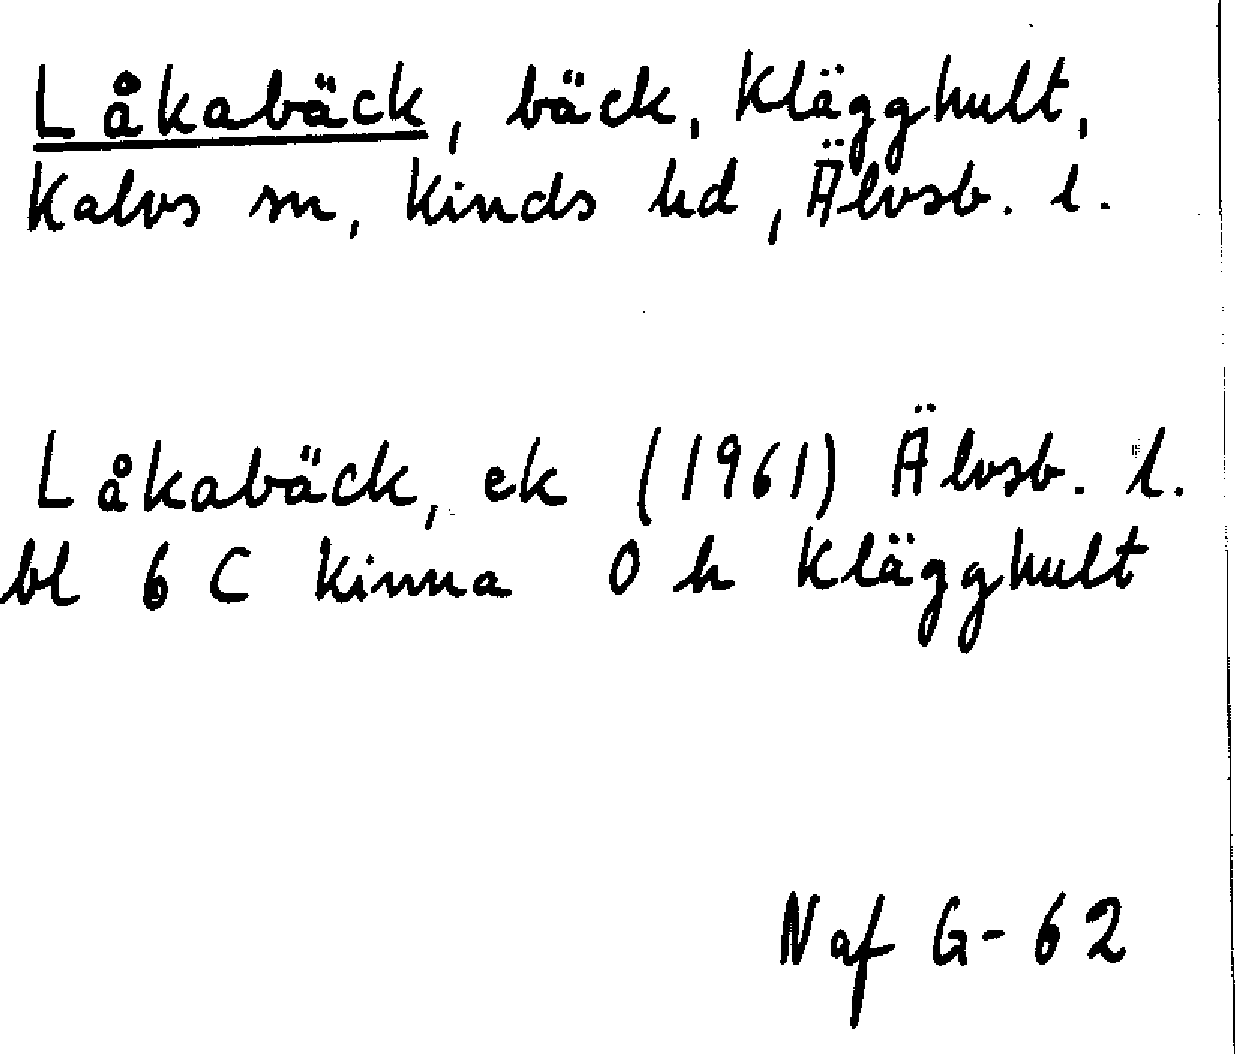 Låkabäck, bäck, Klägghult,
Kalvs sn, Kinds hd, Älvsb. l.
Låkabäck, ek (1961) Älvsb. l.
bl 6 C Kinna O h Klägghult
N af G-62